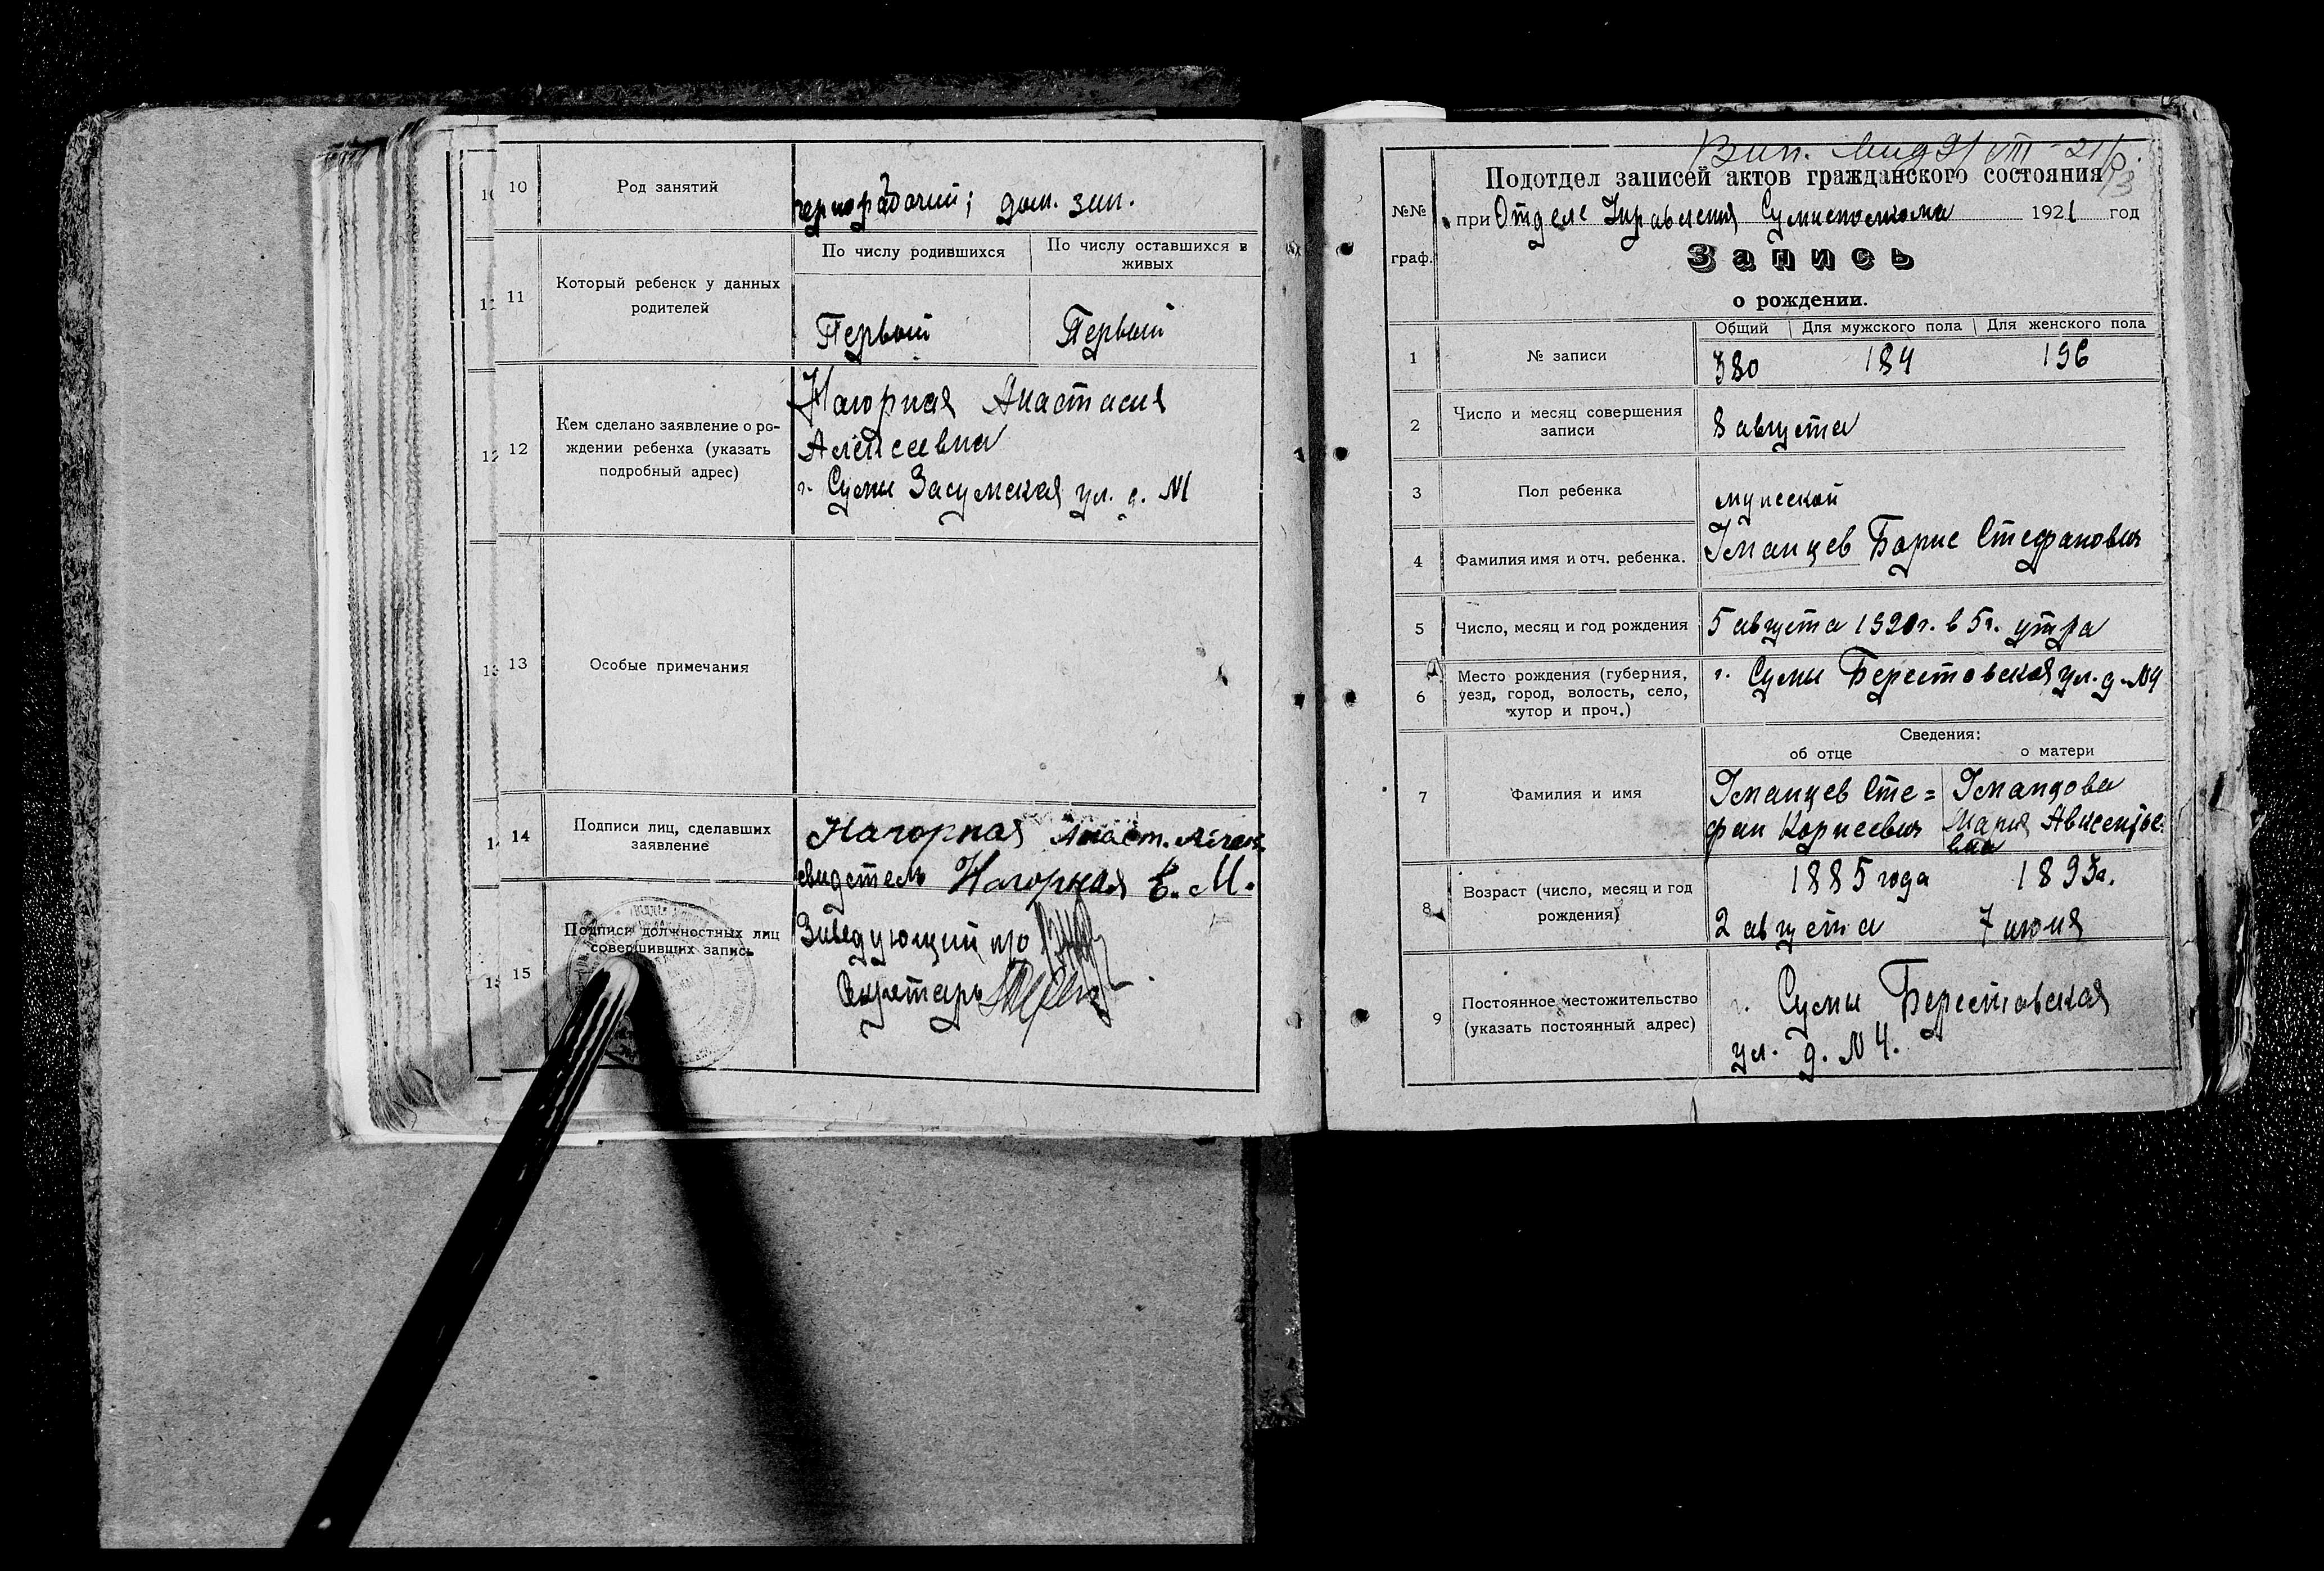 10
Род занятий
чернорабочий; дом. зан.
11
Который ребенок у данных
родителей
По числу родившихся
По числу оставшихся в
живых
Первый
Первый
12
Кем сделано заявление о ро-
ждении ребенка (указать
подробный адрес)
Нагорная Анастасия
Алексеевна
г. Сумы Засумская ул. д. №1
13
Особые примечания
14
Подписи лиц, сделавших
заявление
Нагорная Анаст. Алек
свидетель Нагорная Е. М.
15
Подписи должностных лиц
совершивших запись
Заведующий п/о
Секретарь
Подотдел записей актов гражданского состояния
№№
граф.
при Отделе Управления Сумисполкома 1921 год
Запись
о рождении.
1
№ записи
Общий Для мужского пола Для женского пола
380 184 196
2
Число и месяц совершения
записи
8 августа
3
Пол ребенка
мужской
4
Фамилия имя и отч. ребенка.
Гманцев Борис Стефанович
5
Число, месяц и год рождения
5 августа 1920г. в 5ч. утра
6
Место рождения (губерния,
уезд, город, волость, село,
хутор и проч.)
г. Сумы Берестовская ул. д. №4
7
Фамилия и имя
Сведения:
об отце
о матери
Гманцев Сте=
фан Корнеевич
Гманцова
Мария Авксентье
вна
8
Возраст (число, месяц и год
рождения)
1885 года
2 августа
1893г.
7 июня
9
Постоянное местожительство
(указать постоянный адрес)
г. Сумы Берестовская
ул. д. №4.